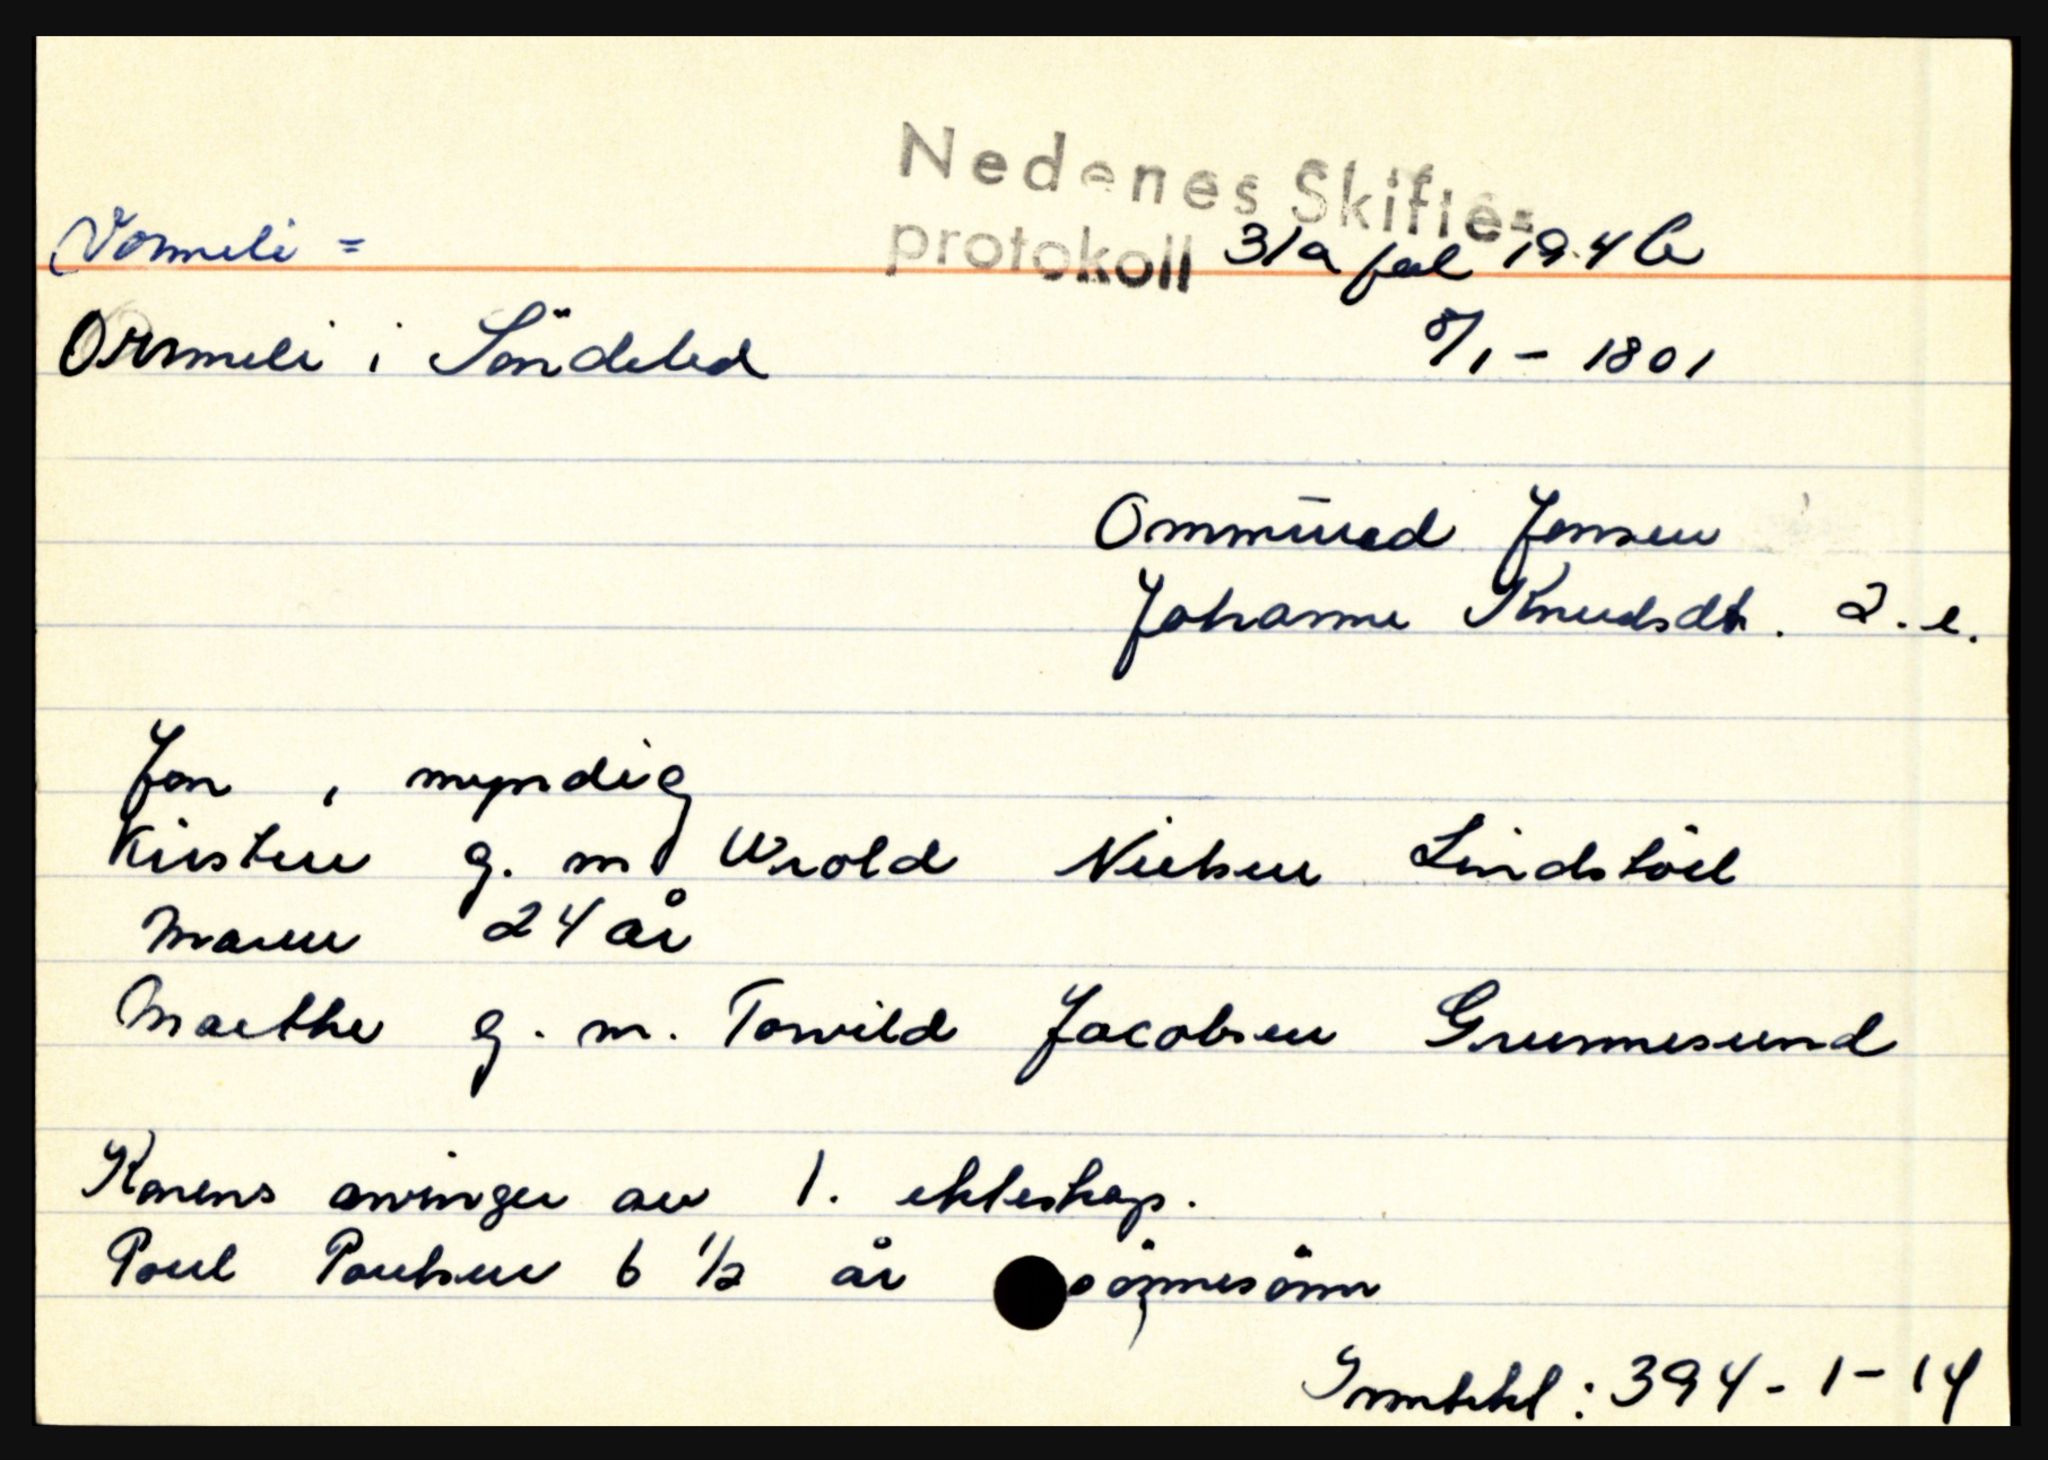 Nedenes Skifte=
Vormeli = protokoll 31a fol 194 b
Ormeli i Söndeled 8/1 - 1801
Ommund Jonsen
Johanne Knudsdt. 2. e.
Jon, myndig
Kirsten g. m. Wrold Nielsen Lindstöel
Maren 24 år
Marthe g. m. Torvild Jacobsen Grummesund
Konens arvinger av 1. ekteskap.
Poul Poulsen 6 1/2 år sönnesönn
Inntekt: 394 - 1 - 14